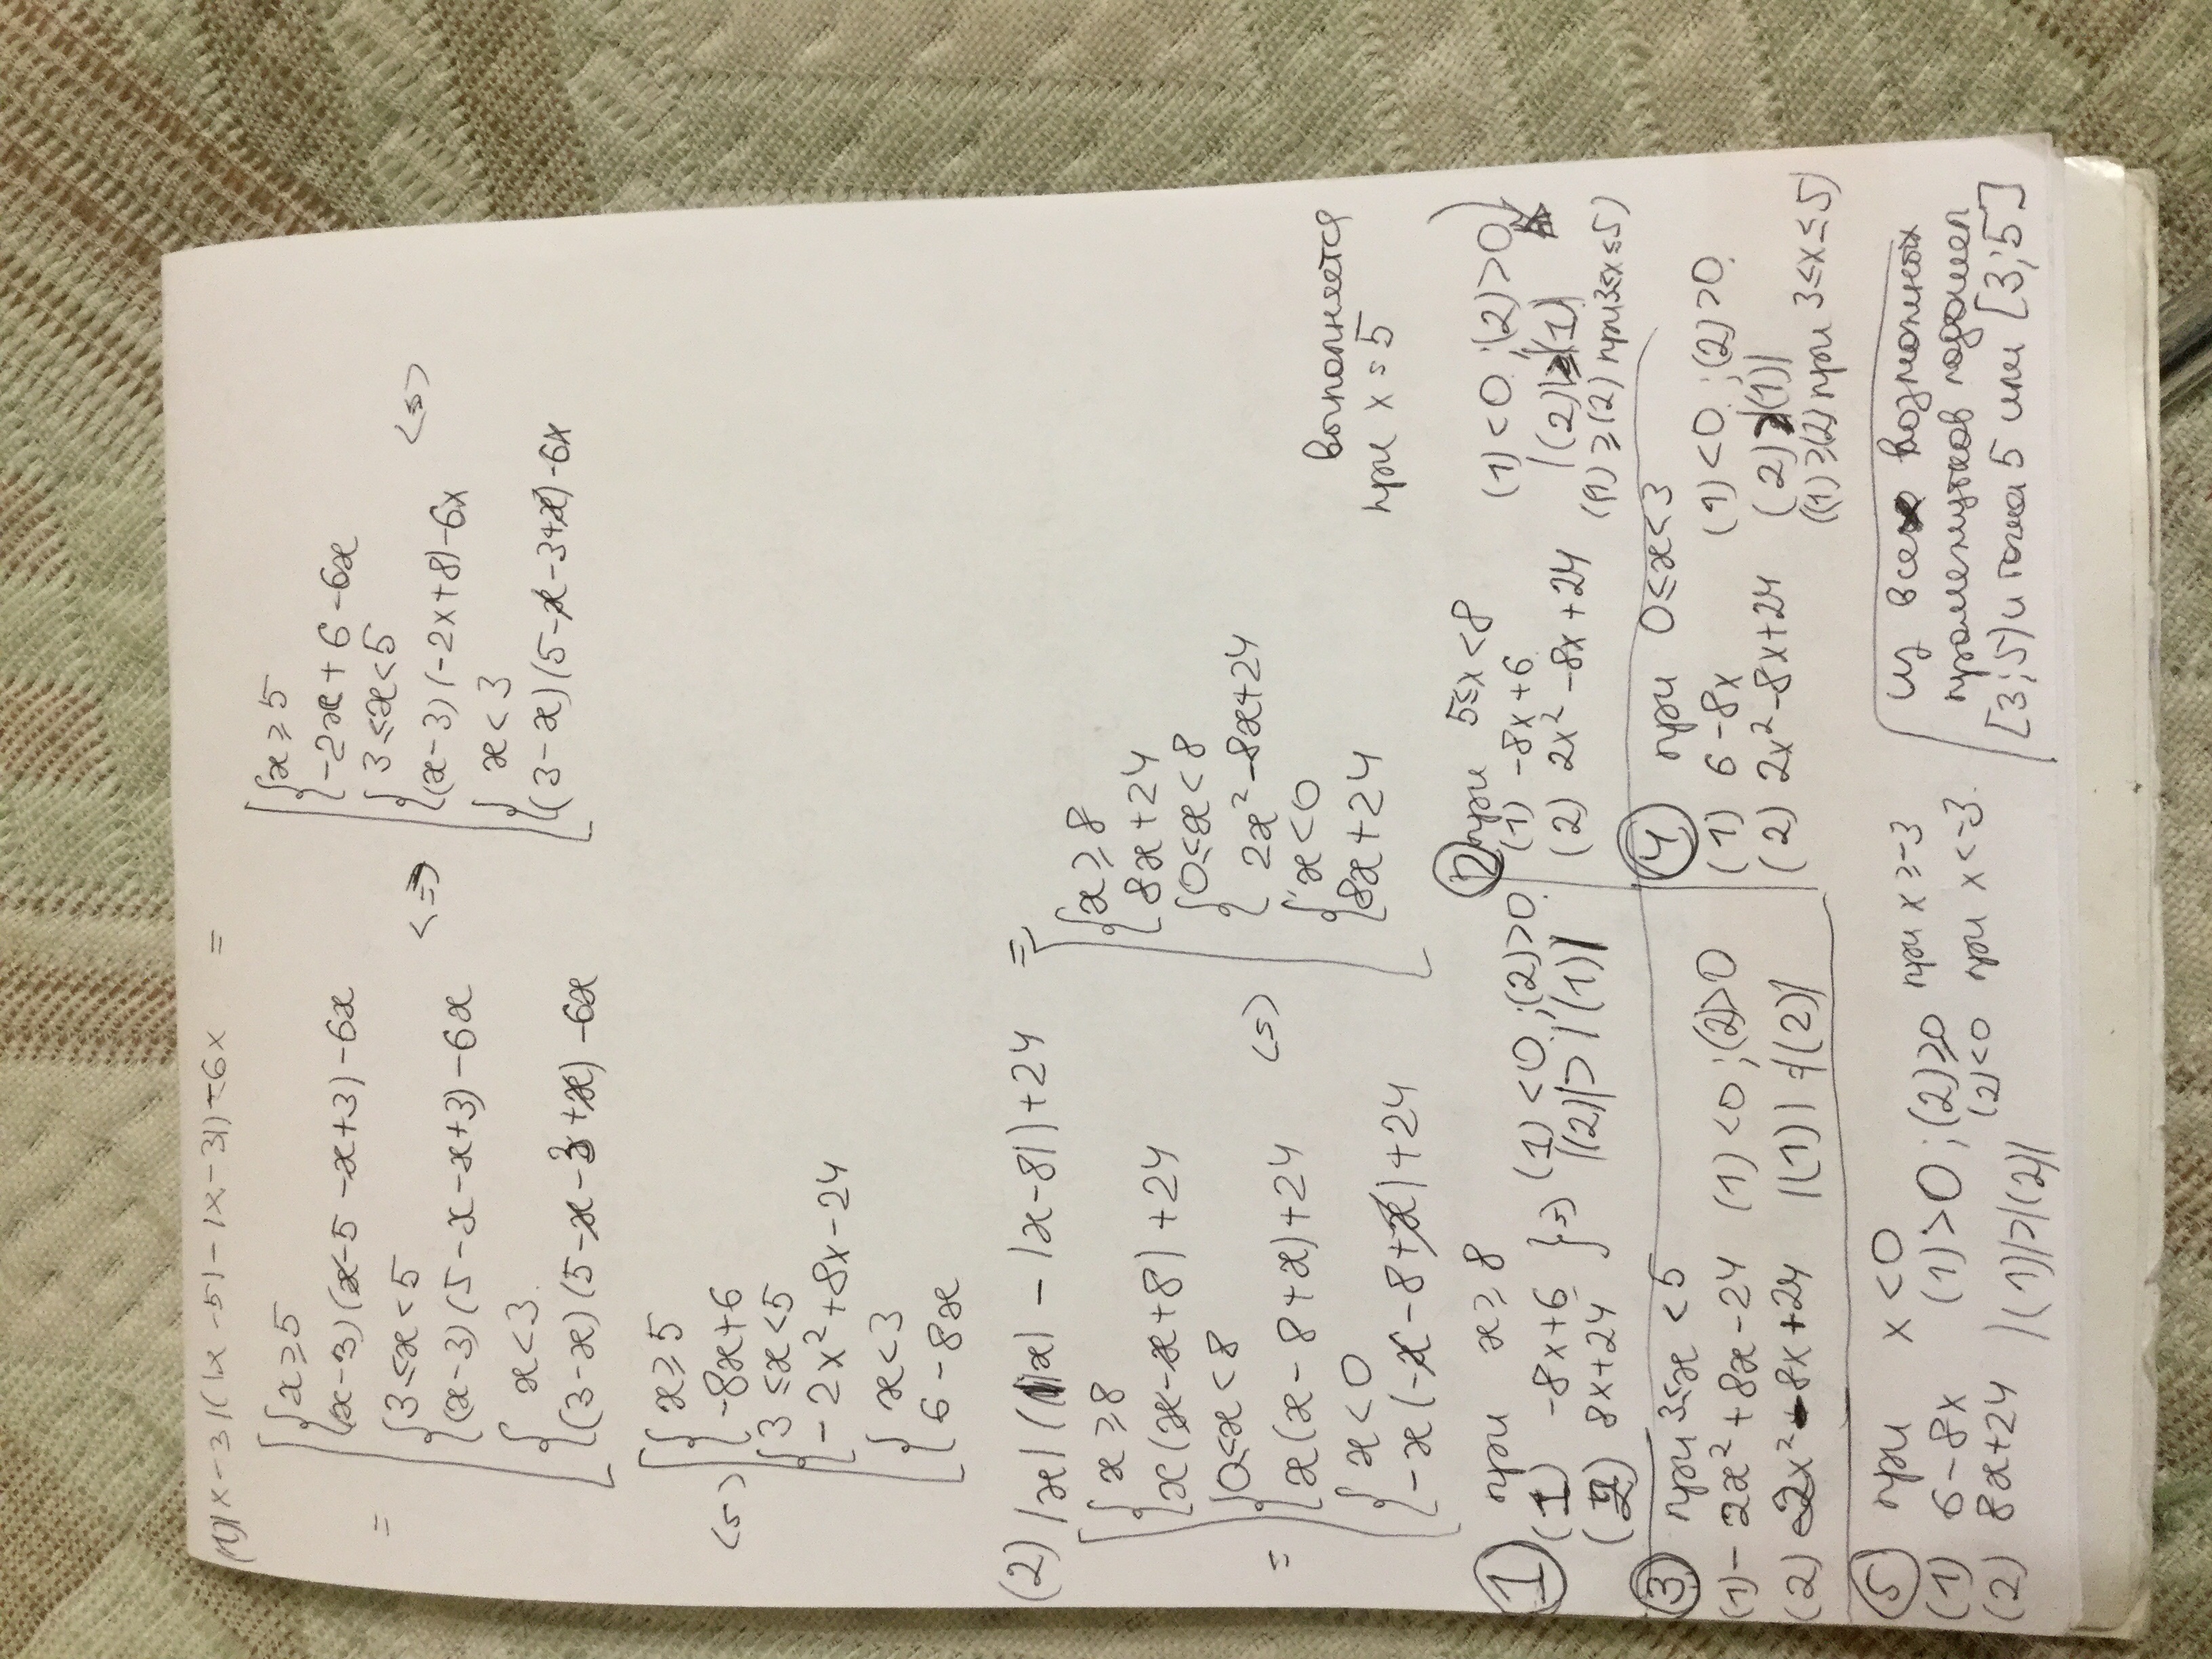 (1) |x-3|(|x-5|-|x-3|)-6x =
= [ { x≥5
(x-3)(x-5-x+3)-6x
{ 3≤x<5
(x-3)(5-x-x+3)-6x
{ x<3
(3-x)(5-x-3+x)-6x
<=>
[ { x≥5
-2x+6-6x
{ 3≤x<5
(x-3)(-2x+8)-6x
{ x<3
(3-x)(5-x-3+x)-6x
<=>
<=> [ { x≥5
-8x+6
{ 3≤x<5
-2x²+8x-24
{ x<3
6-8x
(2) |x|(|x|-|x-8|)+24 =
= [ { x≥8
x(x-x+8)+24
{ 0≤x<8
x(x-8+x)+24
{ x<0
-x(-x-8+x)+24
<=>
[ { x≥8
8x+24
{ 0≤x<8
2x²-8x+24
{ x<0
8x+24
выполняется
при x=5
① при x≥8
(1) -8x+6
(2) 8x+24
} => (1)<0; (2)>0
|(2)|>|(1)|
② при 5≤x<8
(1) -8x+6
(2) 2x²-8x+24
(1)<0; (2)>0
|(2)| |(1)|
((1)≥(2) при 3≤x≤5)
③ при 3≤x<5
(1) -2x²+8x-24
(2) 2x²-8x+24
(1)<0; (2)>0
|(1)|=|(2)|
④ при 0≤x<3
(1) 6-8x
(2) 2x²-8x+24
(1)<0; (2)>0
(2) |(1)|
((1)≥(2) при 3≤x≤5)
⑤ при x<0
(1) 6-8x
(2) 8x+24
(1)>0; (2)≥0 при x≥-3
(2)<0 при x<-3
|(1)|>|(2)|
Из всех возможных
промежутков подошел
[3;5) и точка 5 или [3;5]